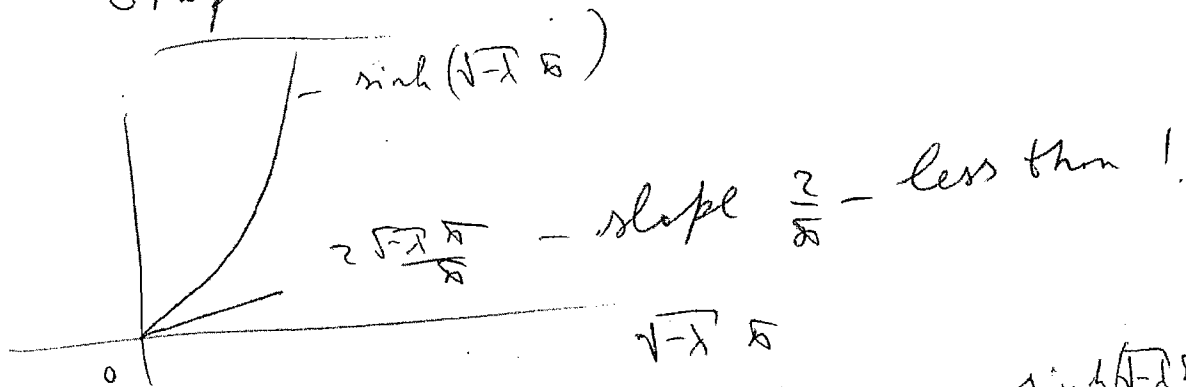 sinh(√-λ π)
2 √-λ π/π – slope 2/π – less than 1.
√-λ π
0
sinh(√-λ π